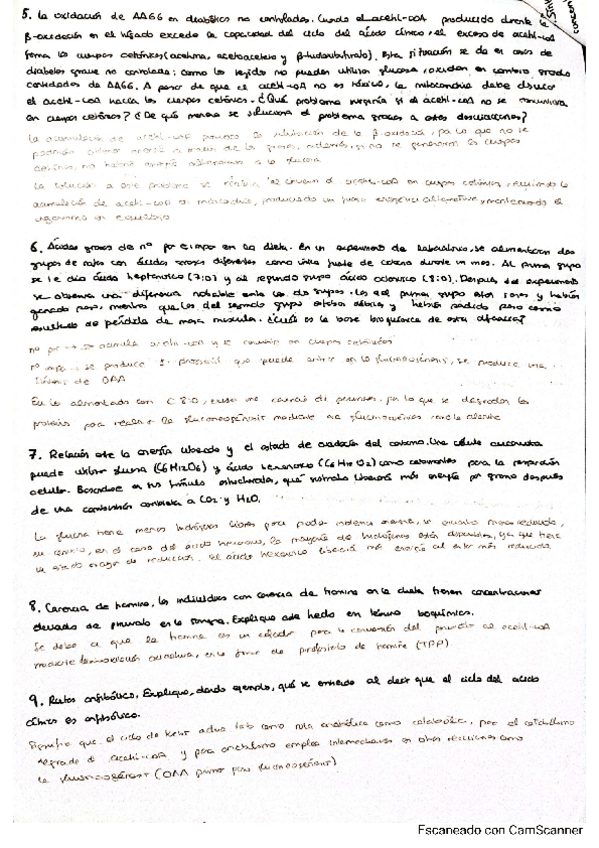 5. La oxidación de AAGG en diabéticos no controlados. Cuando el acetil-CoA producido durante la
β-oxidación en el hígado excede la capacidad del ciclo del ácido cítrico, el exceso de acetil-CoA
forma los cuerpos cetónicos (acetona, acetoacetato y β-hidroxibutirato). Esta situación se da en casos de
diabetes grave no controlada: como los tejidos no pueden utilizar glucosa, oxidan en cambio grandes
cantidades de AAGG. A pesar de que el acetil-CoA no es tóxico, la mitocondria debe
el acetil-CoA hacia los cuerpos cetónicos. ¿Qué problema surgiría si el acetil-CoA no se convirtiera
en cuerpos cetónicos? ¿De qué manera se soluciona el problema gracias a estas desviaciones?
La acumulación de acetil-CoA la inhibición de la β-oxidación, por lo que no se
podrían obtener energía a partir de las grasas, además, si no se generaran los cuerpos
cetónicos, no habría energía alternativa a la glucosa
La solución a este problema se al convertir el acetil-CoA en cuerpos cetónicos, la
acumulación de acetil-CoA en mitocondria, produciendo una fuente energética alternativa y manteniendo el
organismo en equilibrio
6. Ácidos grasos de nº par e impar en la dieta. En un experimento de laboratorio, se alimentaron dos
grupos de ratas con ácidos grasos diferentes como única fuente de carbono durante un mes. Al primer grupo
se le dio ácido heptanoico (7:0) y al segundo grupo ácido octanoico (8:0). Después del experimento
se observa una diferencia notable entre los dos grupos. Los del primer grupo están sanos y habían
ganado peso, mientras que los del segundo grupo estaban débiles y habían perdido peso como
resultado de pérdida de masa muscular. ¿Cuál es la base bioquímica de esta diferencia?
nº par → se acumula acetil-CoA y se convierte en cuerpos cetónicos
nº impar → se produce que puede entrar en la gluconeogénesis, se produce una
síntesis de OAA
En los alimentados con C 8:0, existe una carencia de por lo que se degradan las
proteínas para realizar la gluconeogénesis mediante aa glucogénicos como la alanina
7. Relación entre la energía liberada y el estado de oxidación del carbono. Una célula eucariota
puede utilizar glucosa (C6H12O6) y ácido hexanoico (C6H12O2) como carburantes para la respiración
celular. Basándose en sus fórmulas estructurales, qué sustrato liberará más energía por gramo después
de una combustión completa a CO2 y H2O.
La glucosa tiene menos hidrógenos libres para poder obtener energía, se encuentra menos reducida,
en cambio, en el caso del ácido hexanoico, la mayoría de hidrógenos están disponibles, ya que tiene
un estado mayor de reducción. El ácido hexanoico liberará más energía al estar más reducido
8. Carencia de tiamina, los individuos con carencia de tiamina en la dieta tienen concentraciones
elevadas de piruvato en la sangre. Explique este hecho en términos bioquímicos.
Se debe a que la tiamina es un cofactor para la conversión del piruvato al acetil-CoA
mediante descarboxilación oxidativa, en la forma de pirofosfato de tiamina (TPP)
9. Rutas anfibólicas. Explique, dando ejemplo, qué se entiende al decir que el ciclo del ácido
cítrico es anfibólico.
Significa que el ciclo de Krebs actúa tanto como ruta anabólica como catabólica, por el catabolismo
degrada el acetil-CoA y para anabolismo emplea intermediarios en otras reacciones como
la gluconeogénesis (OAA primer paso gluconeogénesis)
Escaneado con CamScanner